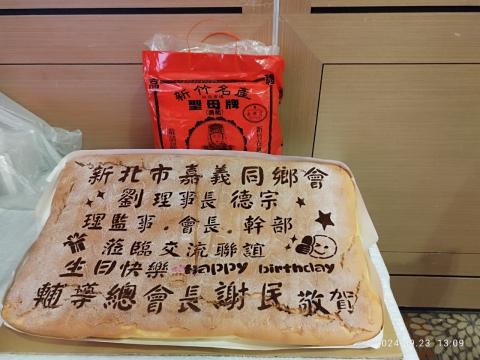 高 禮
新竹名產
聖母牌
新北市嘉義同鄉會
劉理事長德宗
理監事.會長.幹部
蒞臨交流聯誼
生日快樂 Happy birthday
輔導總會長謝民敬賀
2024.09.23 13:09